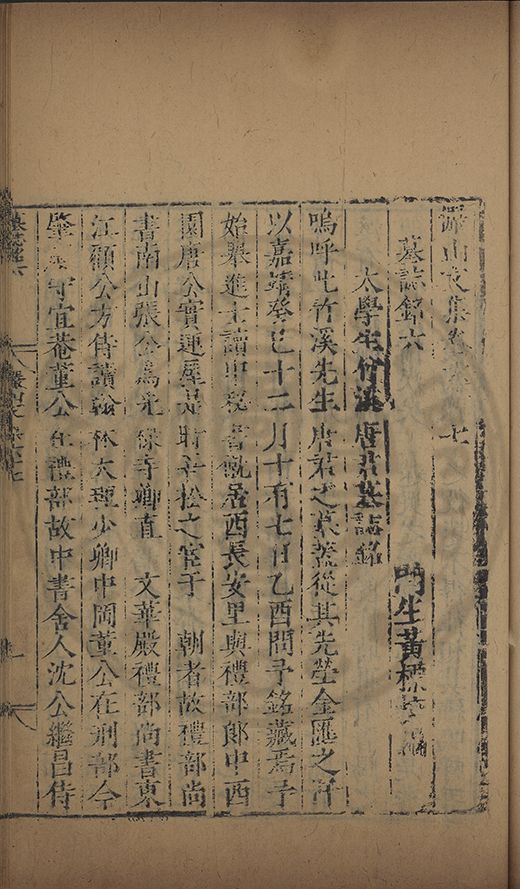 山文集卷之 七
墓誌銘六
門生黃標 編
太學生竹溪唐君墓誌銘
嗚呼此竹溪先生唐君之墓蓋從其先塋金匯之
以嘉靖癸巳十二月十有七日乙酉問予銘藏焉予
始舉進士讀中秘書僦居西長安里與禮部郎中西
園唐公實連 是時吾松之宦于 朝者故禮部尚
書南山張公為光祿寺卿直 文華殿禮部尚書東
江顧公方侍讀翰林大理少卿中岡董公在刑部今
肇慶守宜菴董公在禮部故中書舍人沈公繼昌侍